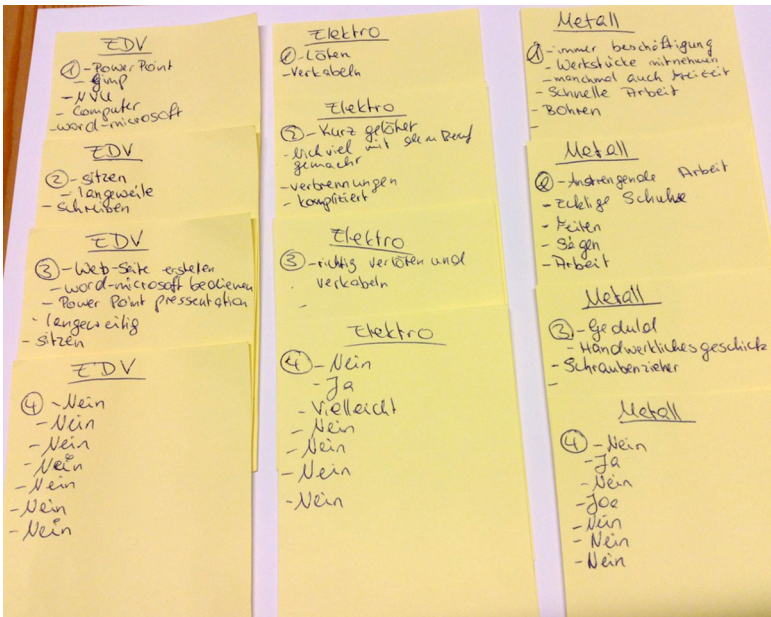 EDV
① - Power Point
- Gimp
- NVU
- Computer
- word-microsoft
EDV
② - sitzen
- langeweile
- schreiben
EDV
③ - Web-Seite erstellen
- word-microsoft bedienen
- Power Point pressentation
- langeweilig
- sitzen
EDV
④ - Nein
- Nein
- Nein
- Nein
- Nein
- Nein
- Nein
Elektro
① - Löten
- Verkabeln
Elektro
② - Kurz gelötet
- Nich viel mit dem Beruf
gemacht
- verbrennungen
- kompliziert
Elektro
③ - richtig verlöten und
verkabeln
-
Elektro
④ - Nein
- Ja
- Vielleicht
- Nein
- Nein
- Nein
- Nein
Metall
① - immer beschäftigung
- Werkstücke mitnehmen
- manchmal auch Freizeit
- Schnelle Arbeit
- Bohren
-
Metall
② - Anstrengende Arbeit
- Ecklige Schuhe
- Feilen
- Sägen
- Arbeit
Metall
③ - Geduld
- Handwerkliches geschick
- Schraubenzieher
-
Metall
④ - Nein
- Ja
- Nein
- Joa
- Nein
- Nein
- Nein